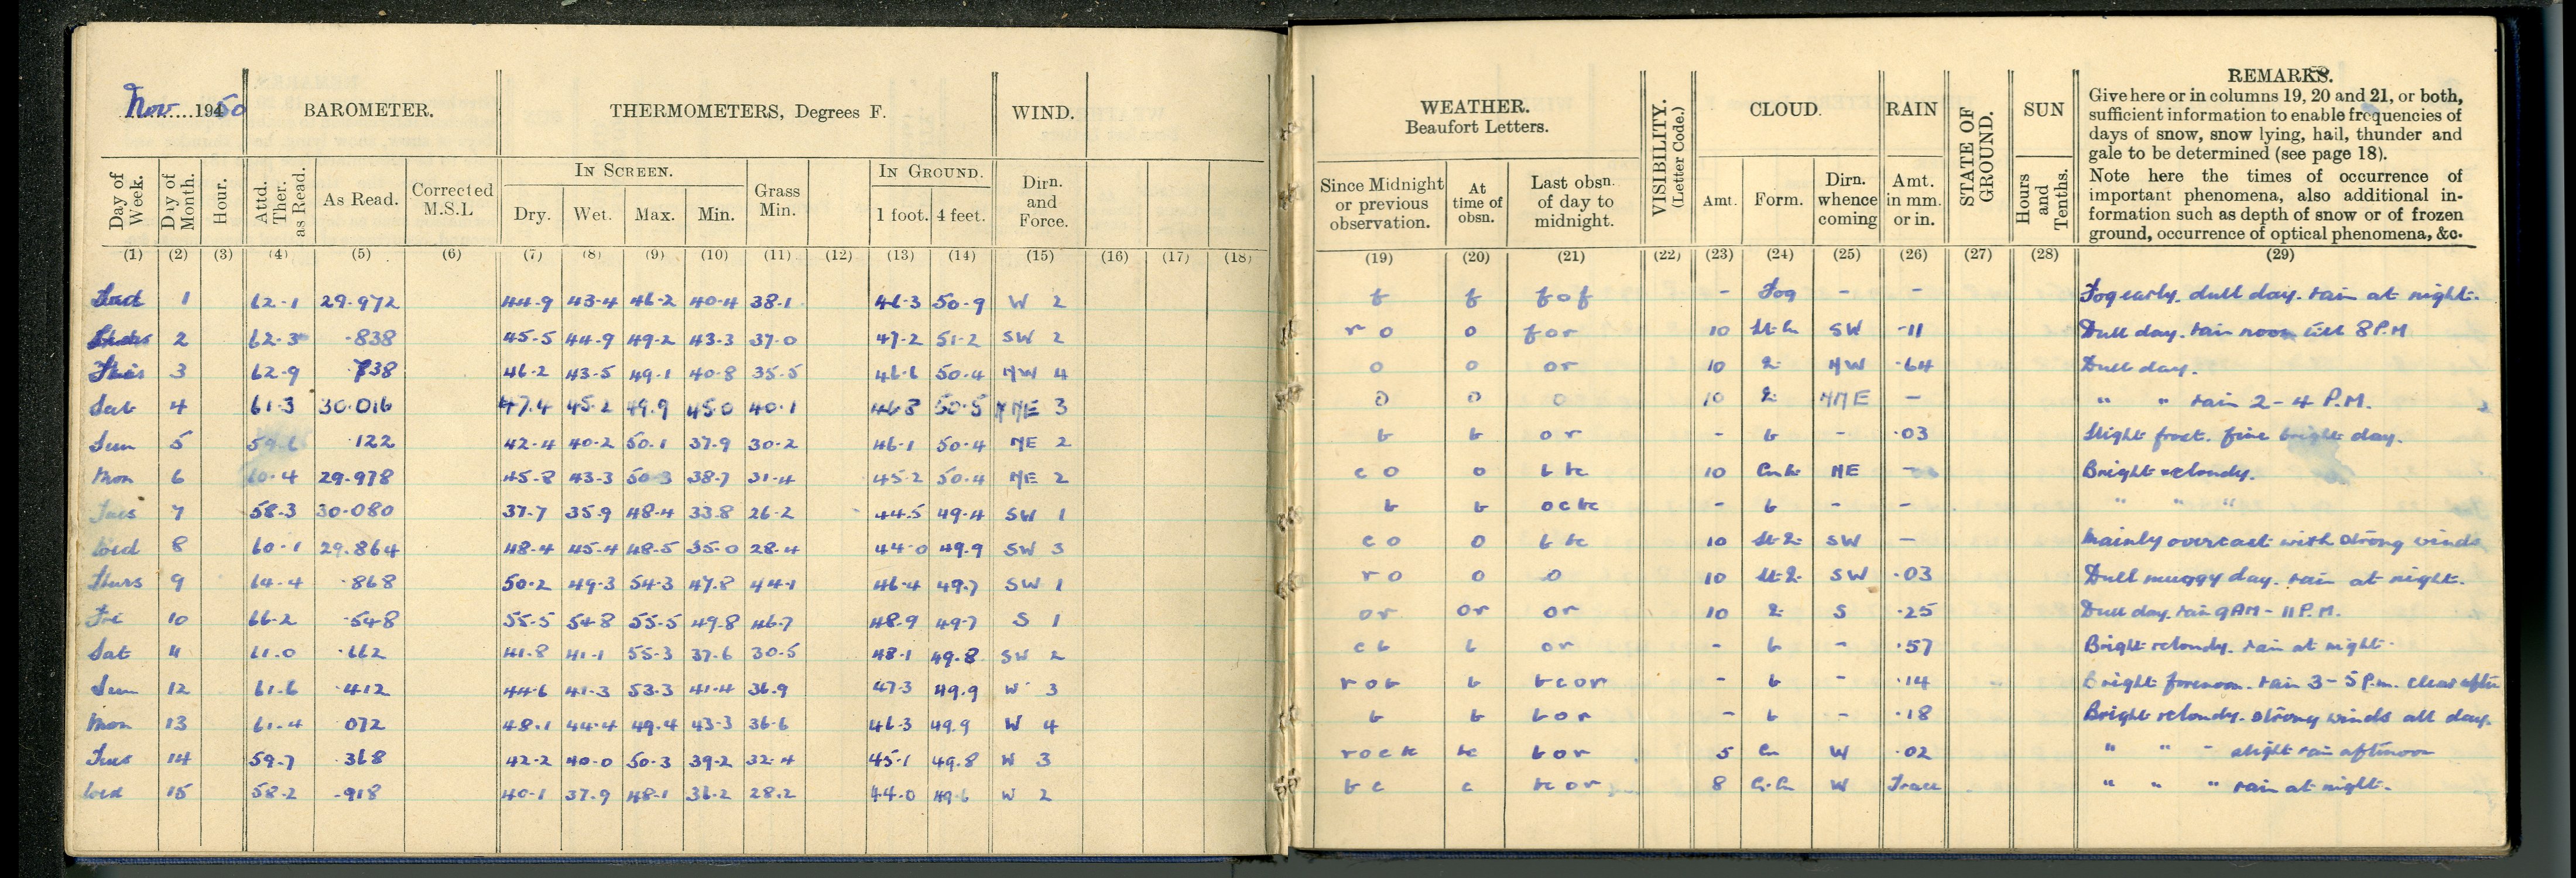 Nov. 1950
BAROMETER. THERMOMETERS, Degrees F. WIND.
Day of Week. Day of Month. Hour. Attd. Ther. as Read. As Read. Corrected M.S.L IN SCREEN. Dry. Wet. Max. Min. Grass Min. IN GROUND. 1 foot. 4 feet. Dirn. and Force.
(1) (2) (3) (4) (5) (6) (7) (8) (9) (10) (11) (12) (13) (14) (15) (16) (17) (18)
Wed 1 62.1 29.972 44.9 43.4 46.2 40.4 38.1 46.3 50.9 W 2
Thurs 2 62.3 .838 45.5 44.9 49.2 43.3 37.0 47.2 51.2 SW 2
3 62.9 .738 46.2 43.5 49.1 40.8 35.5 46.6 50.4 NW 4
Sat 4 61.3 30.016 47.4 45.2 49.9 45.0 40.1 46.8 50.5 NNE 3
Sun 5 59.6 .122 42.4 40.2 50.1 37.9 30.2 46.1 50.4 NE 2
Mon 6 60.4 29.978 45.8 43.3 50.3 38.7 31.4 45.2 50.4 NE 2
Tues 7 58.3 30.080 37.7 35.9 48.4 33.8 26.2 44.5 49.4 SW 1
Wed 8 60.1 29.864 48.4 45.4 48.5 35.0 28.4 44.0 49.9 SW 3
Thurs 9 64.4 .868 50.2 49.3 54.3 47.8 44.1 46.4 49.7 SW 1
Fri 10 66.2 .548 55.5 54.8 55.5 49.8 46.7 48.9 49.7 S 1
Sat 11 61.0 .662 41.8 41.1 55.3 37.6 30.5 48.1 49.8 SW 2
Sun 12 61.6 .412 44.6 41.3 53.3 41.4 36.9 47.3 49.9 W 3
Mon 13 61.4 072 48.1 44.4 49.4 43.3 36.6 46.3 49.9 W 4
Tues 14 59.7 .368 42.2 40.0 50.3 39.2 32.4 45.1 49.8 W 3
Wed 15 58.2 .918 40.1 37.9 48.1 36.2 28.2 44.0 49.6 W 2
WEATHER. Beaufort Letters. VISIBILITY. (Letter Code.) CLOUD. RAIN STATE OF GROUND. SUN REMARKS.
Give here or in columns 19, 20 and 21, or both,
sufficient information to enable frequencies of
days of snow, snow lying, hail, thunder and
gale to be determined (see page 18).
Note here the times of occurrence of
important phenomena, also additional in-
formation such as depth of snow or of frozen
ground, occurrence of optical phenomena, &c.
Since Midnight or previous observation. At time of obsn. Last obsn. of day to midnight. Amt. Form. Dirn. whence coming Amt. in mm. or in. Hours and Tenths.
(19) (20) (21) (22) (23) (24) (25) (26) (27) (28) (29)
f f fof - Fog - - Fog early. dull day. rain at night.
r o o for 10 SW .11 Dull day. rain noon till 8 P.M
o o or 10 NW .64 Dull day.
o o o 10 NNE - " " rain 2-4 P.M.
b b or - b - .03 Slight frost. fine bright day.
c o o bc 10 NE - Bright & cloudy.
b b ocbc - b - - " " "
c o o bc 10 SW - Mainly overcast with strong winds
r o o o 10 SW .03 Dull muggy day. rain at night.
or or or 10 S .25 Dull day. rain 9 AM - 11 P.M.
c b b or - b - .57 Bright & cloudy. rain at night.
r o b b bcor - b - .14 Bright forenoon. rain 3-5 P.m. clear after
b b bor - b - .18 Bright & cloudy. strong winds all day.
rocbc bc bor 5 Cu W .02 " " - slight rain afternoon
bc c bcor 8 W Trace " " " rain at night.